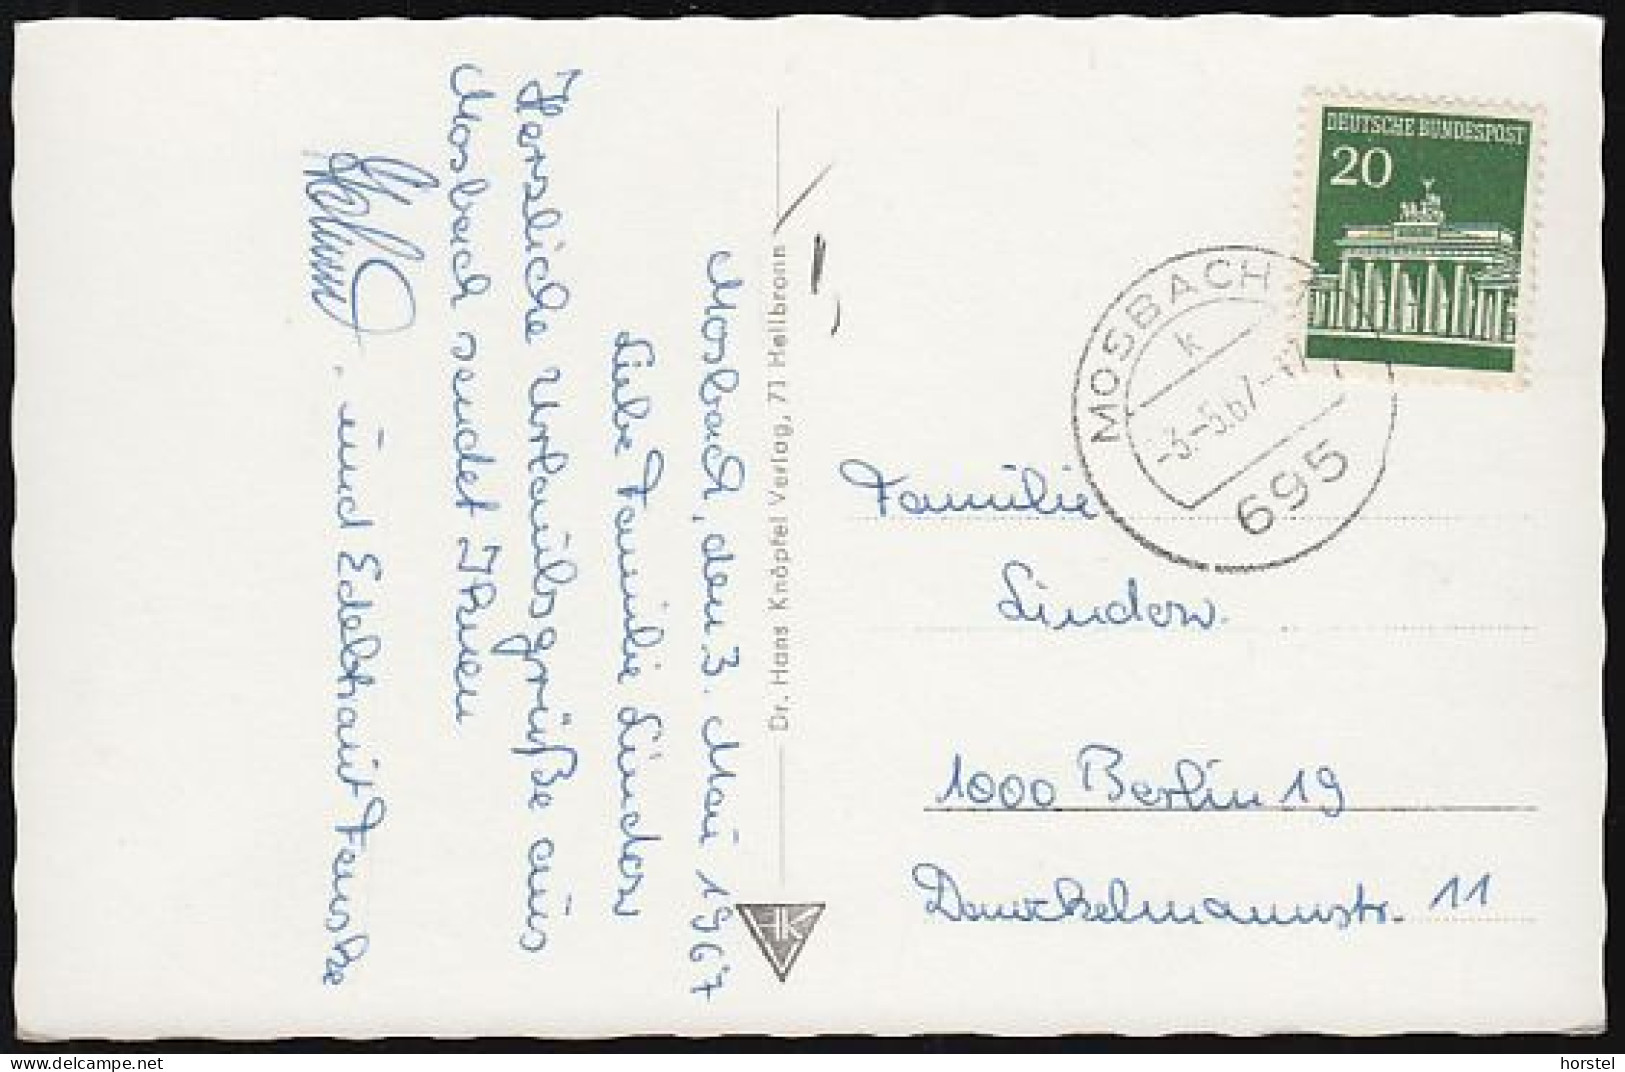 Mosbach, den 3. Mai 1967
Liebe Familie Lindow
Herzliche Urlaubsgrüße aus
Mosbach sendet Ihnen
und Edeltraut Fenske
Dr. Hans Knöpfel Verlag, 71 Heilbronn
HK
DEUTSCHE BUNDESPOST
20
MOSBACH
k
-3.-5.67-17
695
Familie
Lindow.
1000 Berlin 19
Danckelmannstr. 11
delcampe.net
horstel